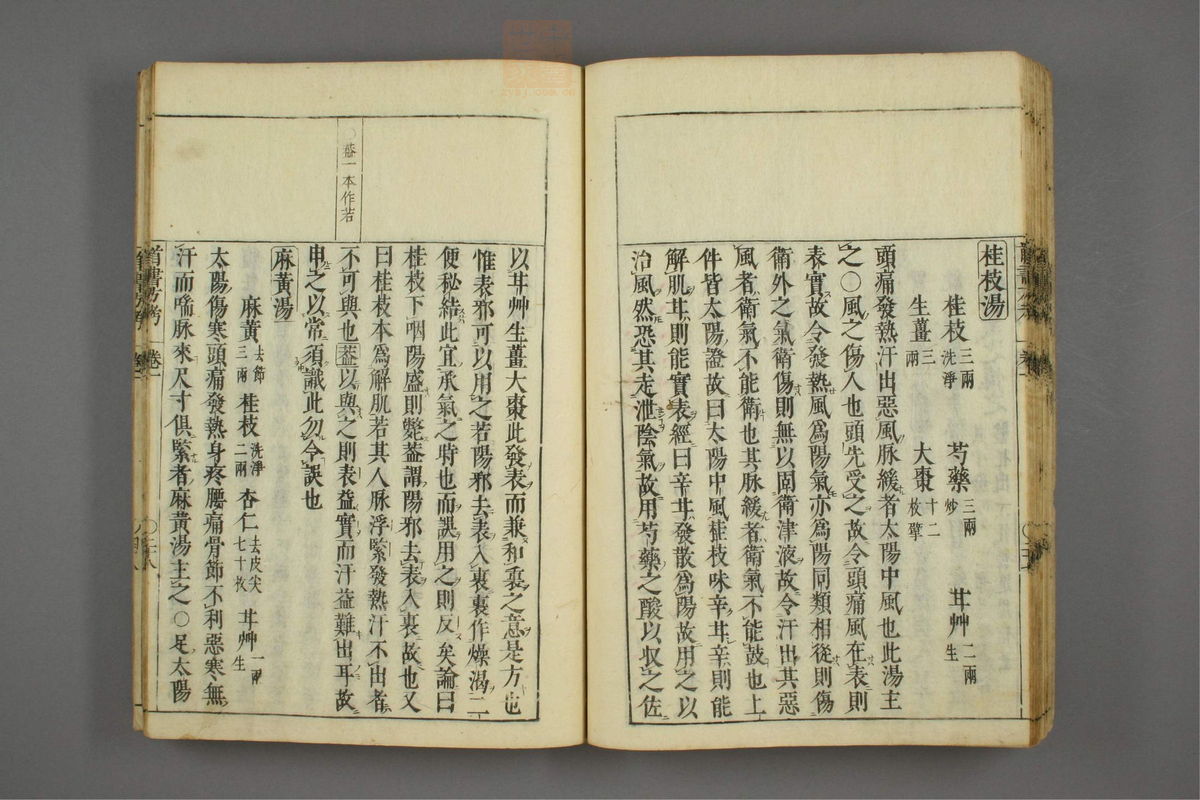 桂枝湯
桂枝三兩洗淨 芍藥三兩炒 甘艸二兩生
生薑三兩 大棗十二枚擘
頭痛發熱汗出惡風脉緩者太陽中風也此湯主
之○風之傷人也頭先受之故令頭痛風在表則
表實故令發熱風爲陽氣亦爲陽同類相從則傷
衛外之氣衛傷則無以固衛津液故令汗出其惡
風者衛氣不能衛也其脉緩者衛氣不能鼓也上
件皆太陽證故曰太陽中風桂枝味辛甘辛則能
解肌甘則能實表經曰辛甘發散爲陽故用之以
治風然恐其走泄陰氣故用芍藥之酸以収之佐
以甘艸生薑大棗此發表而兼和裏之意是方也
惟表邪可以用之若陽邪去表入裏裏作燥渴二
便秘結此宜承氣之時也而誤用之則反矣論曰
桂枝下咽陽盛則斃蓋謂陽邪去表入裏故也又
曰桂枝本爲解肌若其人脉浮緊發熱汗不出者
不可與也蓋以與之則表益實而汗益難出耳故
申之以常須識此勿令誤也
麻黃湯
麻黃去節三兩 桂枝洗淨二兩 杏仁去皮尖七十枚 甘艸一兩生
太陽傷寒頭痛發熱身疼腰痛骨節不利惡寒無
汗而喘脉來尺寸俱緊者麻黃湯主之○足太陽
○蓋一本作若
首書方考 卷一